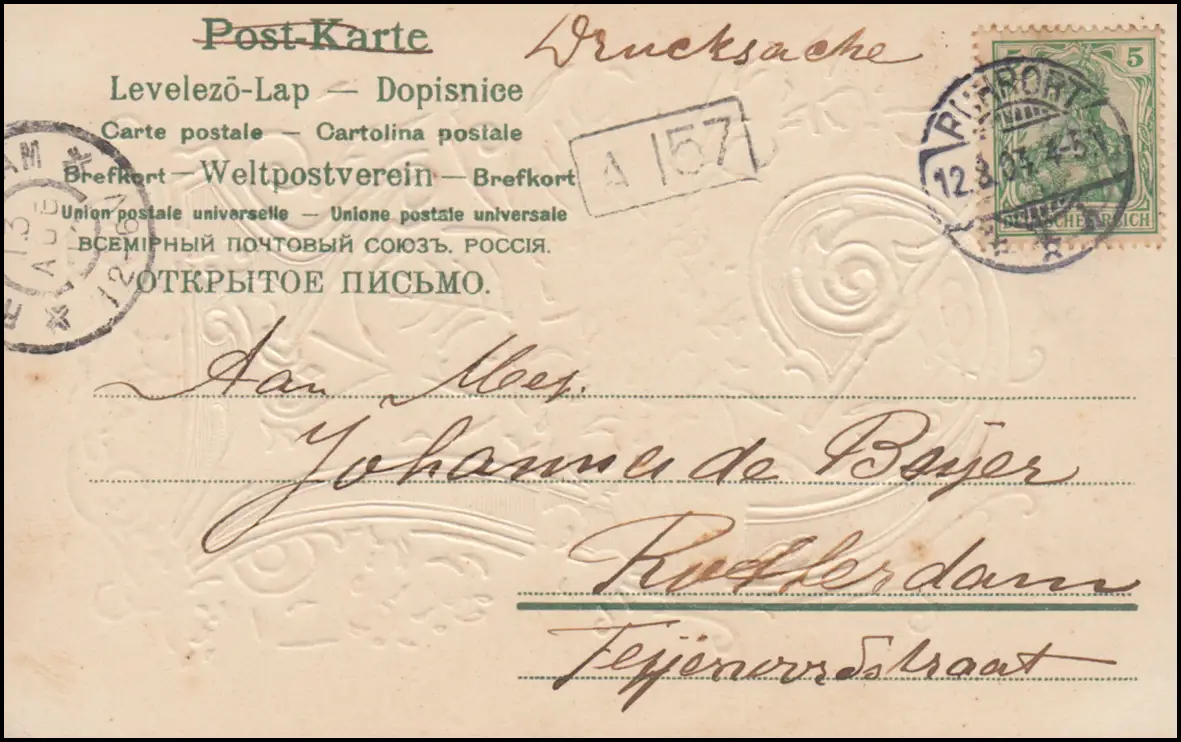 Post-Karte
Drucksache
Levelező-Lap — Dopisnice
Carte postale — Cartolina postale
Brefkort — Weltpostverein — Brefkort
Union postale universelle — Unione postale universale
ВСЕМІРНЫЙ ПОЧТОВЫЙ СОЮЗЪ. РОССІЯ.
ОТКРЫТОЕ ПИСЬМО.
A 157
5 5
DEUTSCHES REICH
RUHRORT
12.8.03. 4-5N
AM
13 AUG
12-6V
Aan Mej.
Johanna de Beijer
Rotterdam
Feijenoordstraat